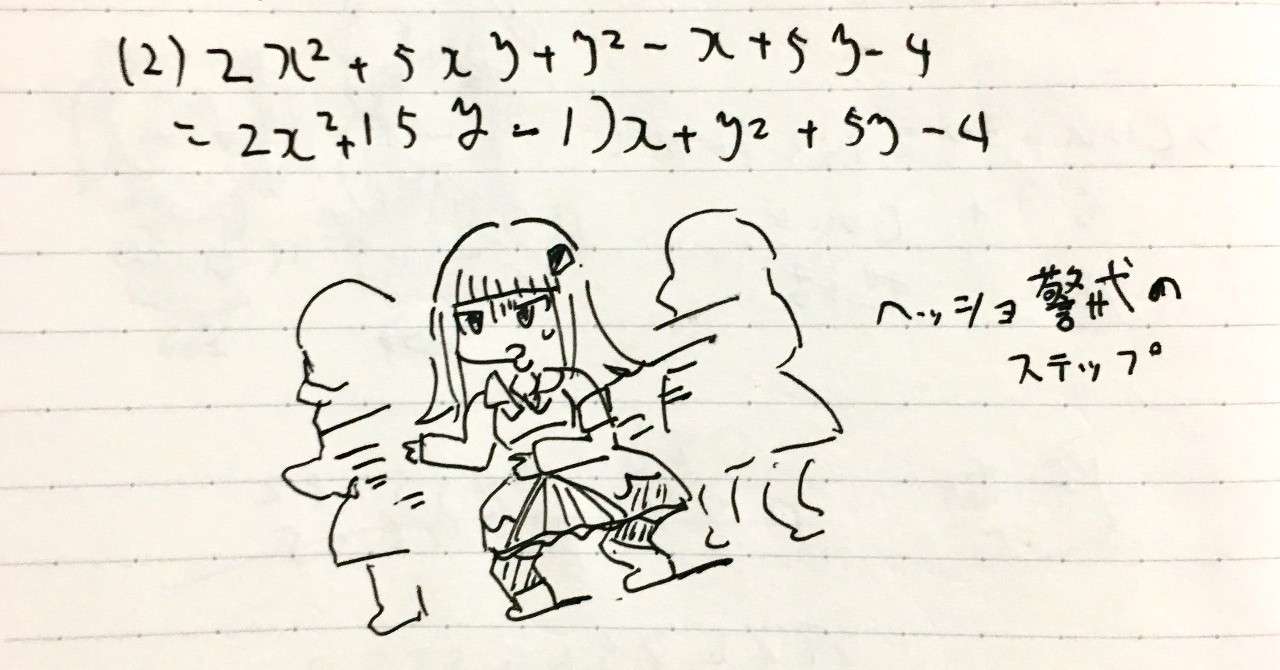 (2) 2x²+5xy+y²-x+5y-4
=2x²+(5y-1)x+y²+5y-4
ヘッショ警戒の
ステップ